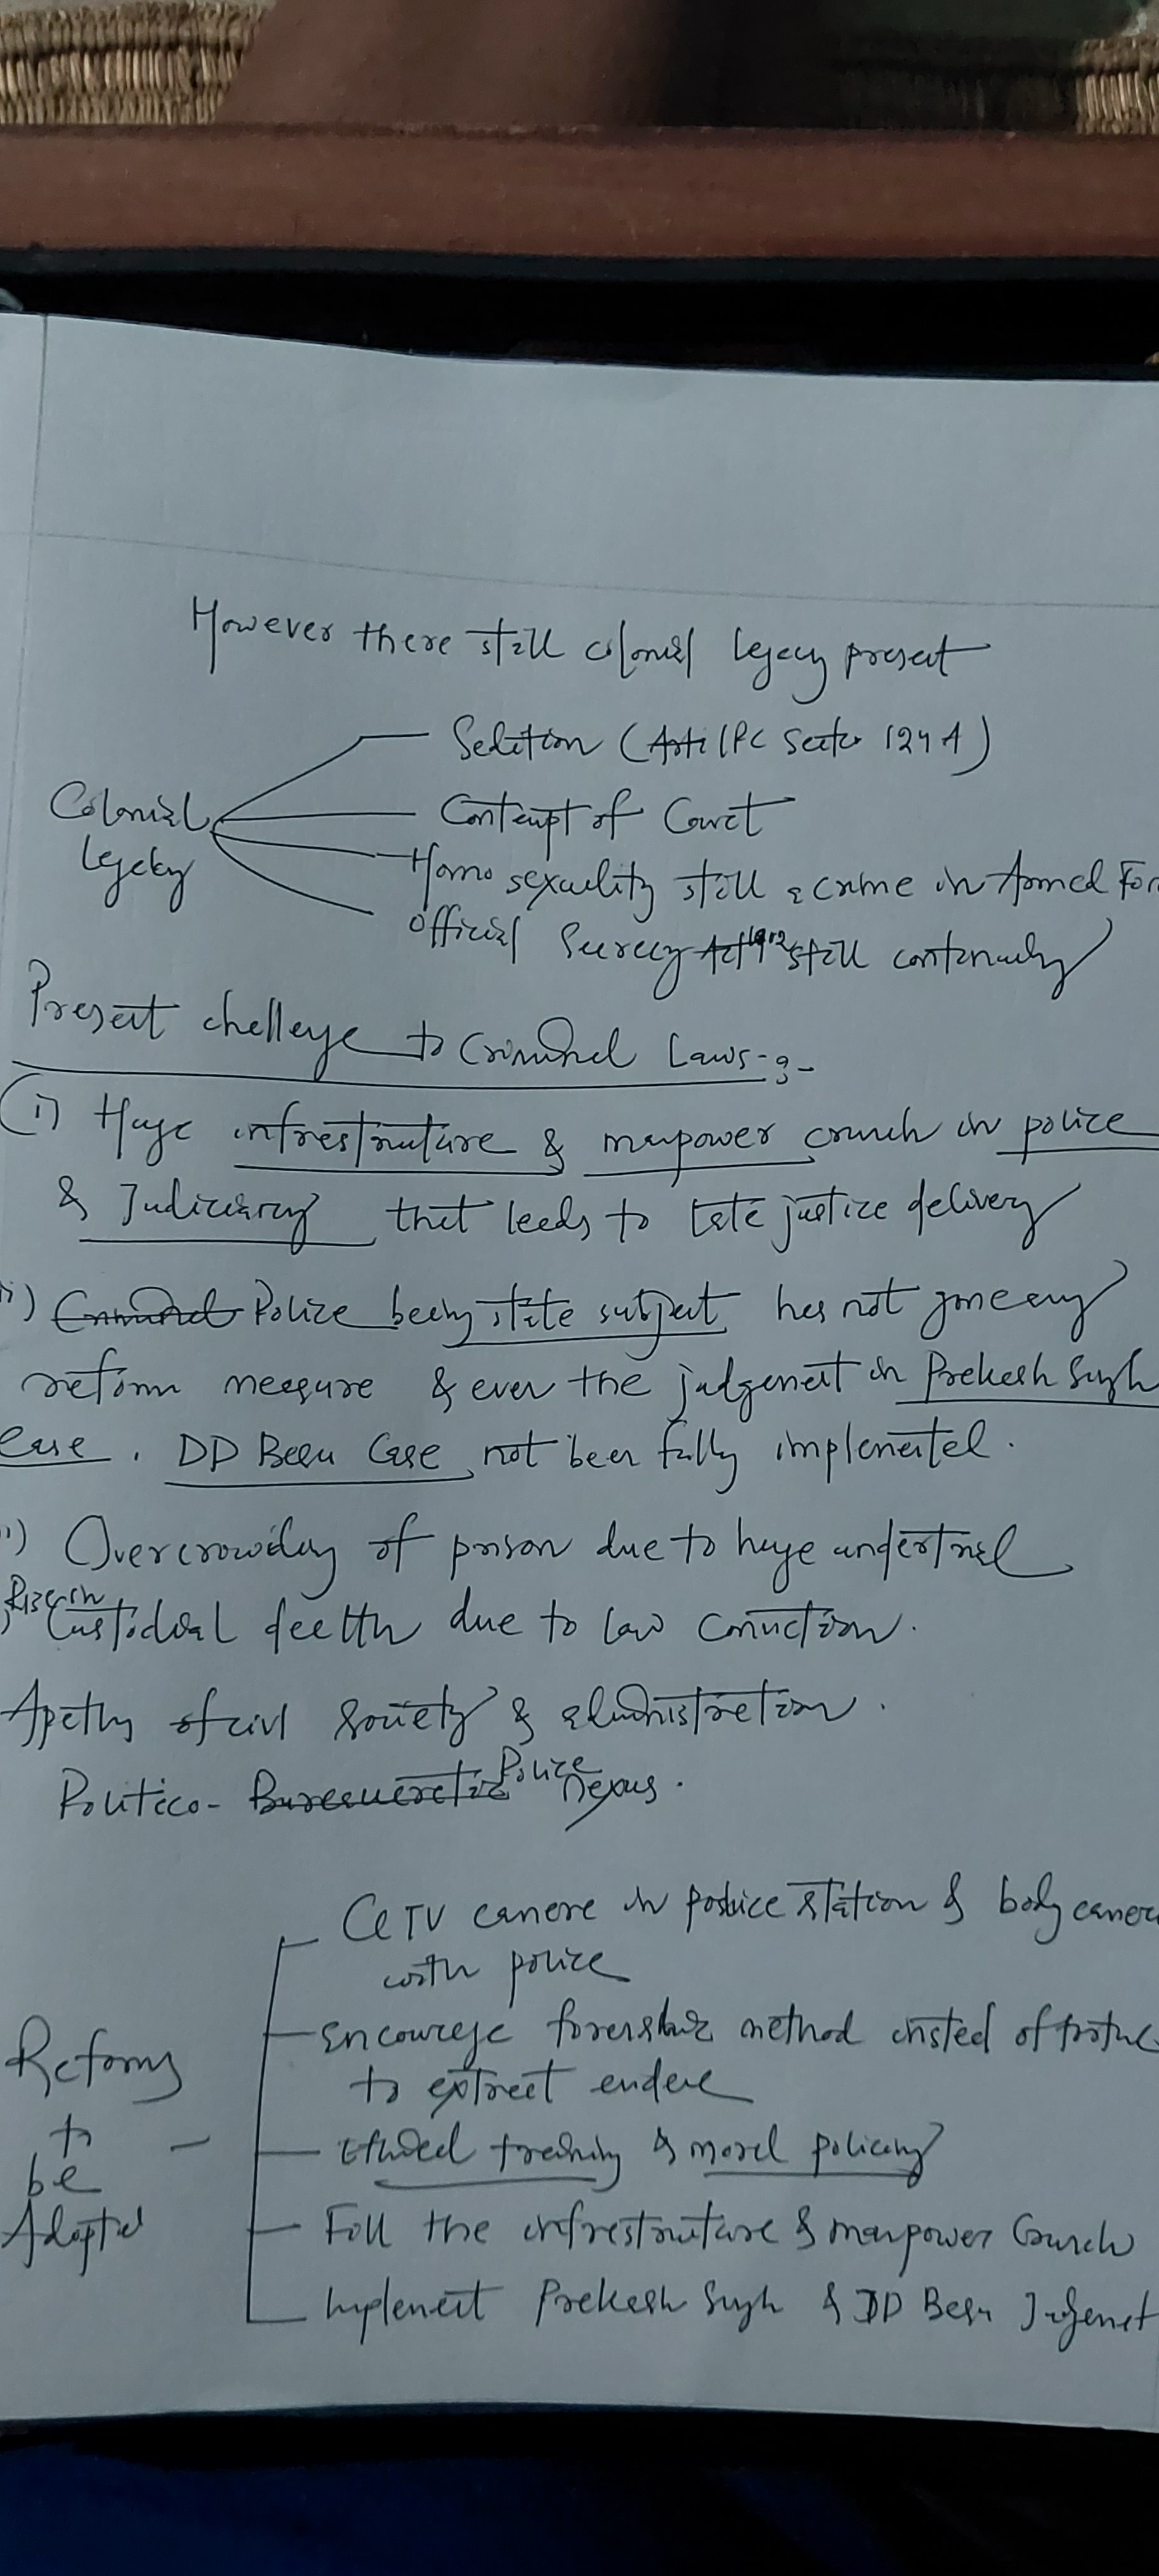 However there still colonial legacy present
Sedition (Arti IPC Sectio 124A)
Colonial
legcky
Contempt of Court
Homo sexuality still a crime in Armed For
Official Secrecy Act still continuing
Present challenge to Criminal Laws:-
(i) Huge infrestruture & manpower crunch in police
& Judiciary that leeds to late justice delivery
) Criminal Police being state subject has not gone any
reform measure & even the judgement in Prakash Singh
Case, DD Basu Case not been fully implemented.
) Overcrowding of prison due to huge undertrial
Rise in
Custodial death due to low conviction.
Apathy of civil society & administration.
Politico- Bureaucratic Police nexus.
CCTV camera in police station & body camera
with police
Encourage method insted of
to extract
Reforms
to
be
Adopted
Ethical training & moral policing
Fill the infrestruture & manpower crunch
Implement Prakash Singh & DD Basu Judgement